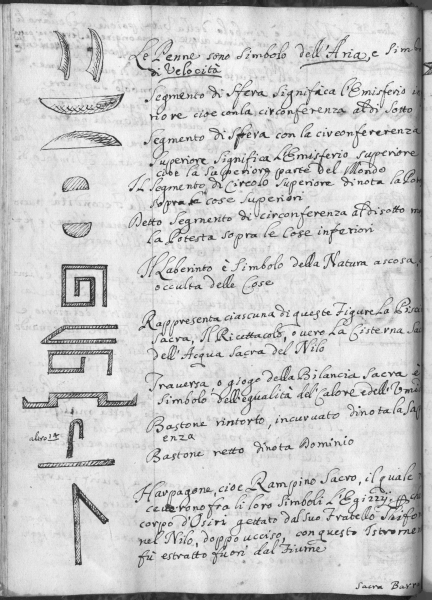 Le Penne sono simbolo dell'Aria, e Simb
di Velocità
Segmento di Sfera significa l'Emisferio in
riore cioè con la circonferenza al di sotto
Segmento di Sfera con la circonfererenza
Superiore significa L'Emisferio superiore
cioè la superiore parte del Mondo
Il Segmento di Circolo Superiore dinota la Po
sopra le cose Superiori
Detto Segmento di circonferenza al disotto
la Potestà sopra le Cose inferiori
Il Laberinto è Simbolo della Natura ascosa,
occulta delle Cose
Rappresenta ciascuna di queste Figure La
Sacra, Il Ricettacolo, o vero La Cisterna Sa
dell'Acqua Sacra del Nilo
Traversa o giogo della Bilancia Sacra è
Simbolo dell'egualità del Calore e dell'Umid
altro
Bastone rintorto, incurvato dinota la Sap
enza
Bastone retto dinota Dominio
Harpagone, cioè Rampino Sacro, il quale
fra li loro Simboli L'Egizzij
corpo d'Osiri gettato dal suo Fratello Tifo
nel Nilo, doppo ucciso, con questo Istromen
fù estratto fuori dal Fiume
Sacra Barc